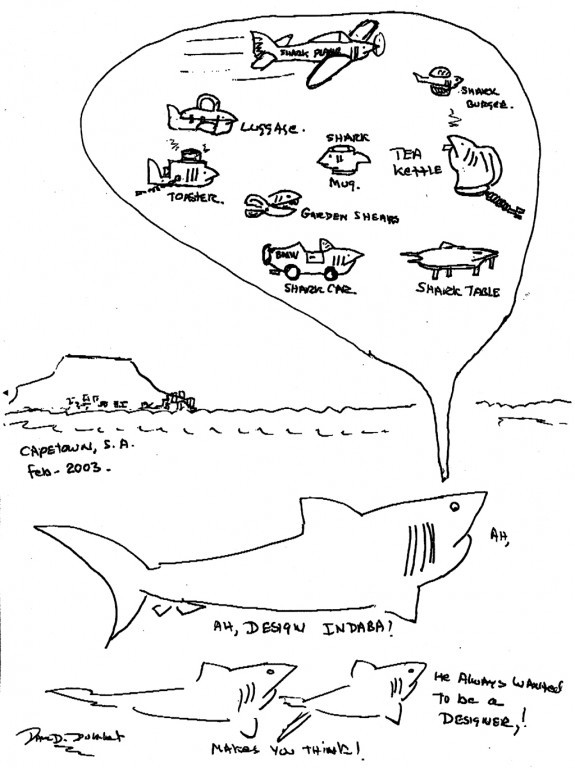 SHARK PLANE
SHARK
BURGER.
LUGGAGE.
SHARK
MUG.
TEA
KETTLE
TOASTER.
GARDEN SHEARS
BMW
SHARK CAR
SHARK TABLE
CAPETOWN, S.A.
Feb - 2003 -
AH,
AH, DESIGN INDABA!
He ALWAYS WANTED
To be a
DESIGNER,!
MAKES YOU THINK!